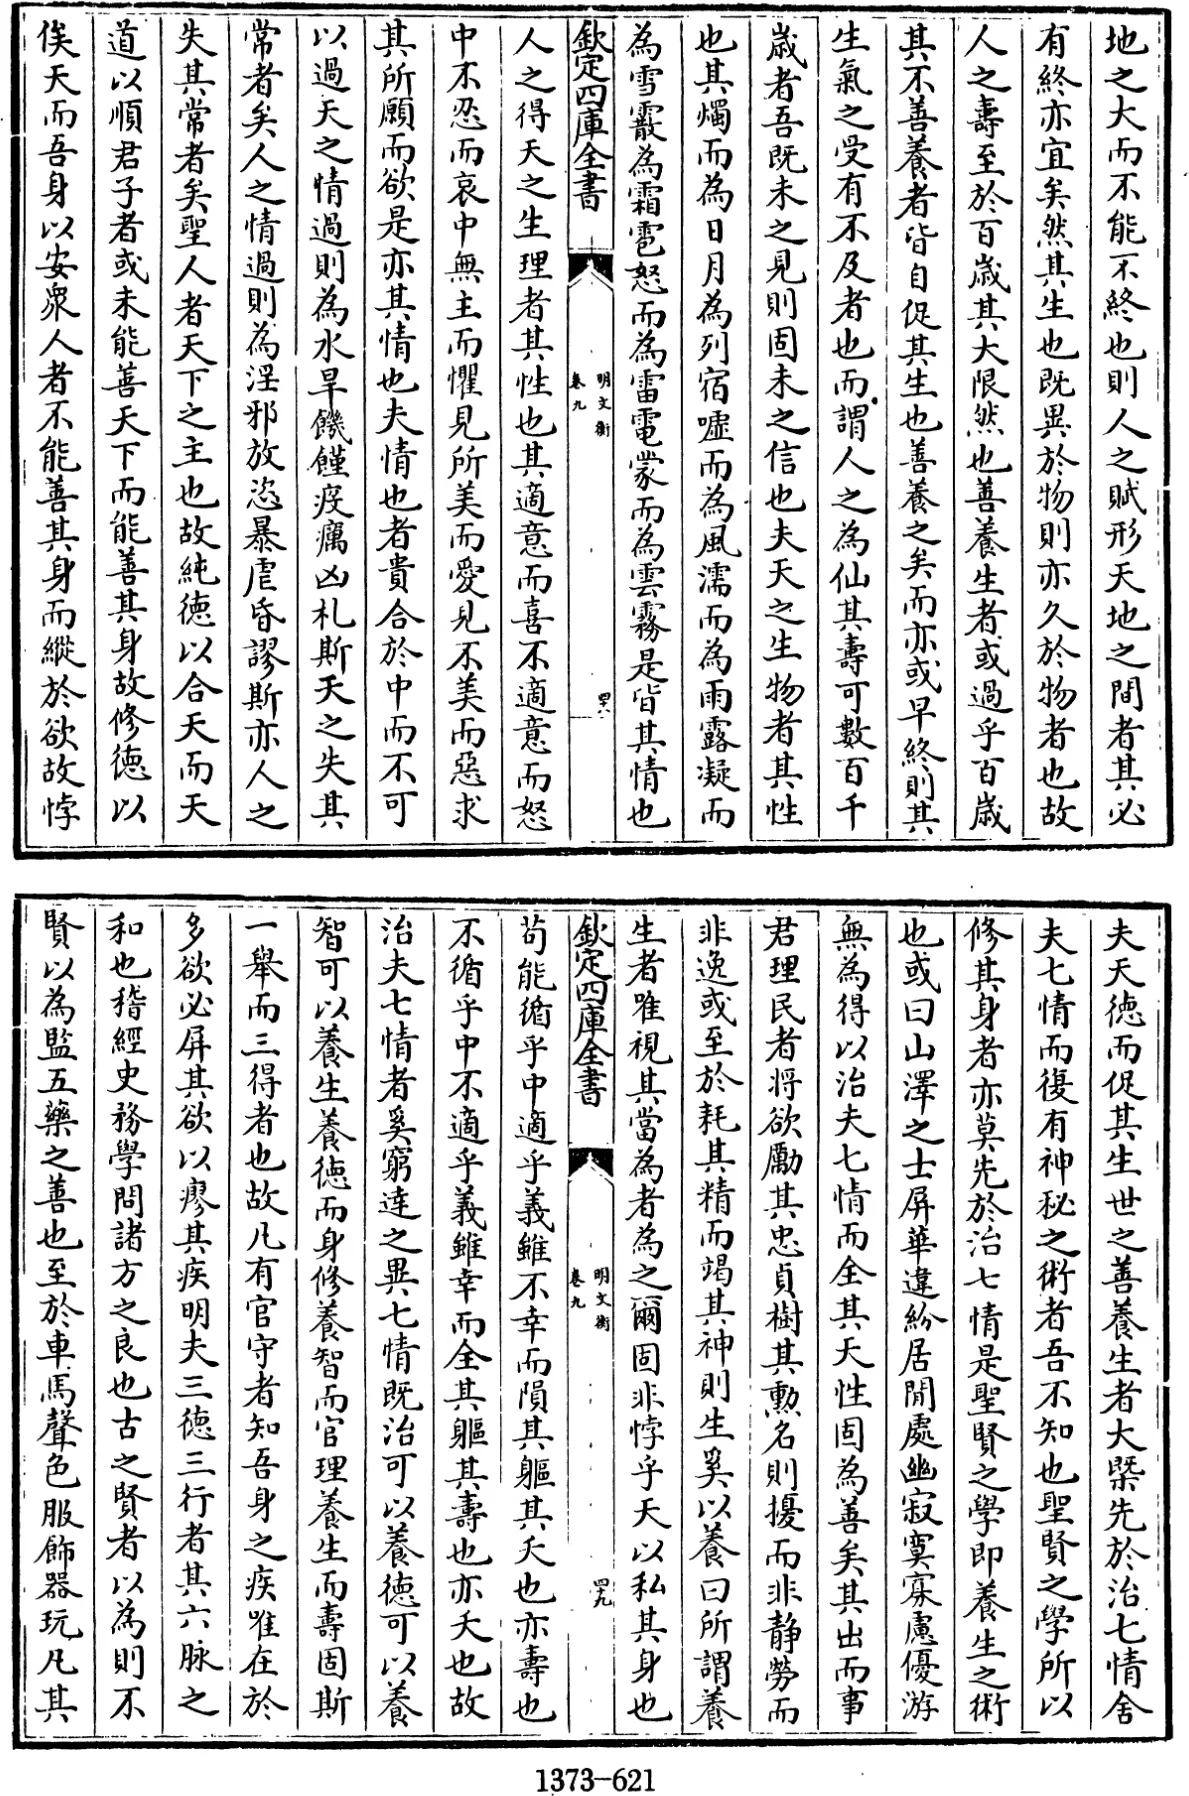 地之大而不能不終也則人之賦形天地之間者其必
有終亦宜矣然其生也既異於物則亦久於物者也故
人之壽至於百嵗其大限然也善養生者或過乎百嵗
其不善養者皆自促其生也善養之矣而亦或早終則其
生氣之受有不及者也而謂人之為仙其壽可數百千
嵗者吾既未之見則固未之信也夫天之生物者其性
也其燭而為日月為列宿噓而為風濡而為雨露凝而
為雪霰為霜雹怒而為雷電蒙而為雲霧是皆其情也
欽定四庫全書
明文衡
卷九
四八
人之得天之生理者其性也其適意而喜不適意而怒
中不忍而哀中無主而懼見所美而愛見不美而惡求
其所願而欲是亦其情也夫情也者貴合於中而不可
以過天之情過則為水旱饑饉疫癘凶札斯天之失其
常者矣人之情過則為淫邪放恣暴虐昏謬斯亦人之
失其常者矣聖人者天下之主也故純德以合天而天
道以順君子者或未能善天下而能善其身故修德以
俟天而吾身以安衆人者不能善其身而縱於欲故悖
夫天德而促其生世之善養生者大槩先於治七情舍
夫七情而復有神秘之術者吾不知也聖賢之學所以
修其身者亦莫先於治七情是聖賢之學即養生之術
也或曰山澤之士屏華違紛居閒處幽寂寞寡慮優游
無為得以治夫七情而全其天性固為善矣其出而事
君理民者將欲勵其忠貞樹其勲名則擾而非静勞而
非逸或至於耗其精而竭其神則生奚以養曰所謂養
生者唯視其當為者為之爾固非悖乎天以私其身也
欽定四庫全書
明文衡
卷九
四九
苟能循乎中適乎義雖不幸而隕其軀其夭也亦壽也
不循乎中不適乎義雖幸而全其軀其壽也亦夭也故
治夫七情者奚窮達之異七情既治可以養德可以養
智可以養生養德而身修養智而官理養生而壽固斯
一舉而三得者也故凡有官守者知吾身之疾唯在於
多欲必屏其欲以瘳其疾明夫三德三行者其六脉之
和也稽經史務學問諸方之良也古之賢者以為則不
賢以為監五藥之善也至於車馬聲色服飾器玩凡其
1373-621